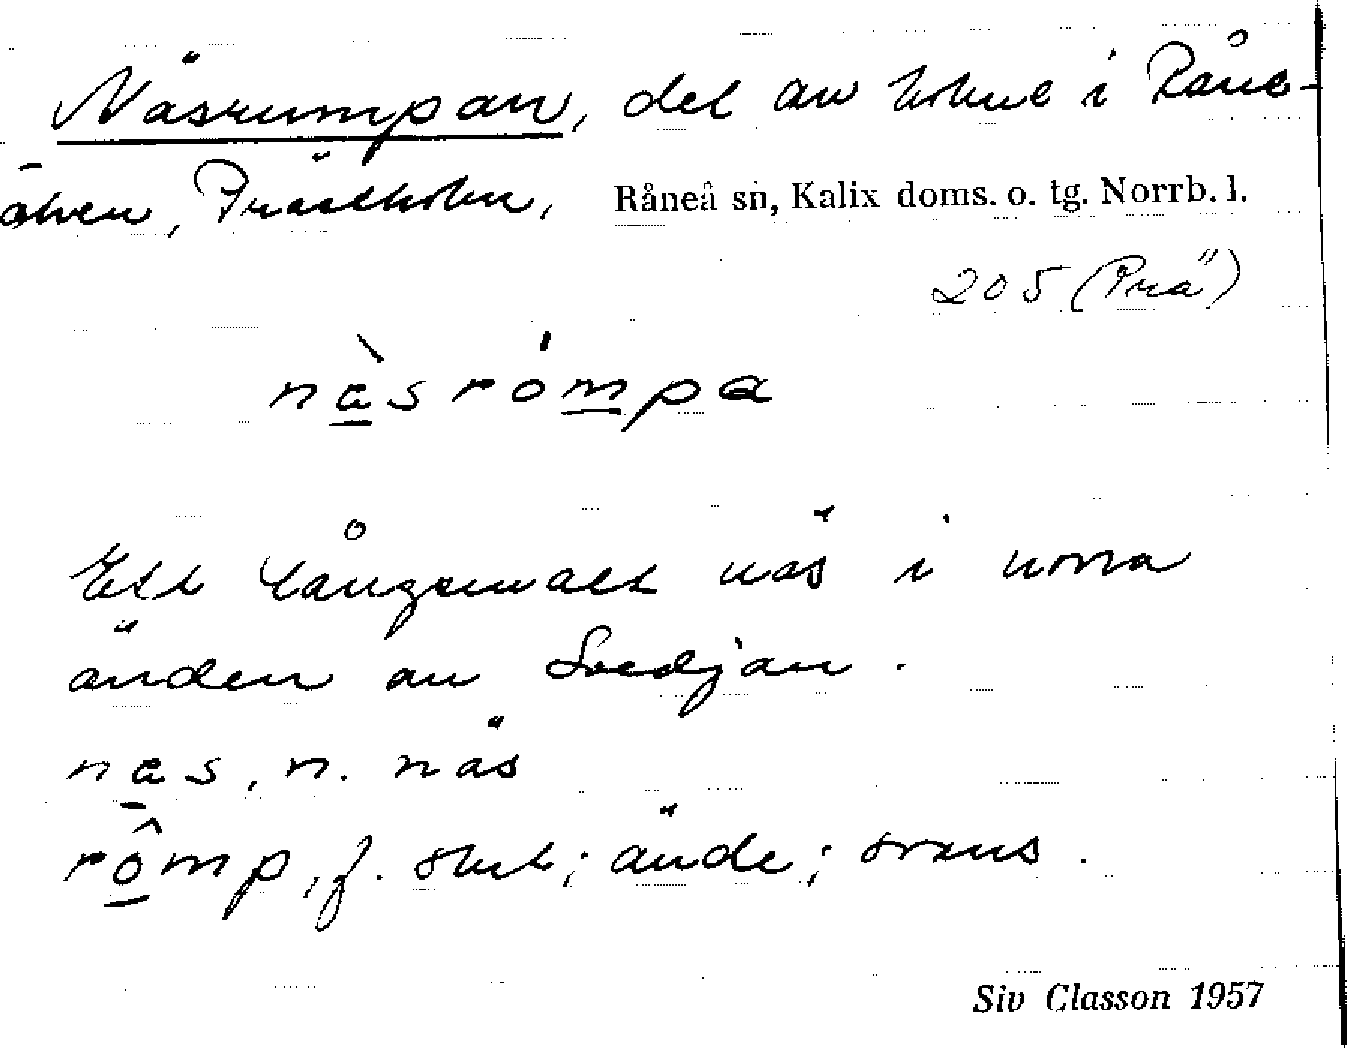 Näsrumpan, del av holme i Råne-
älven, Prästholm, Råneå sn, Kalix doms. o. tg. Norrb. l.
205 (Prä)
nàsrómpa
Ett långsmalt näs i norra
änden av Svedjan.
nas, n. näs
rômp, f. slut; ände; svans.
Siv Classon 1957